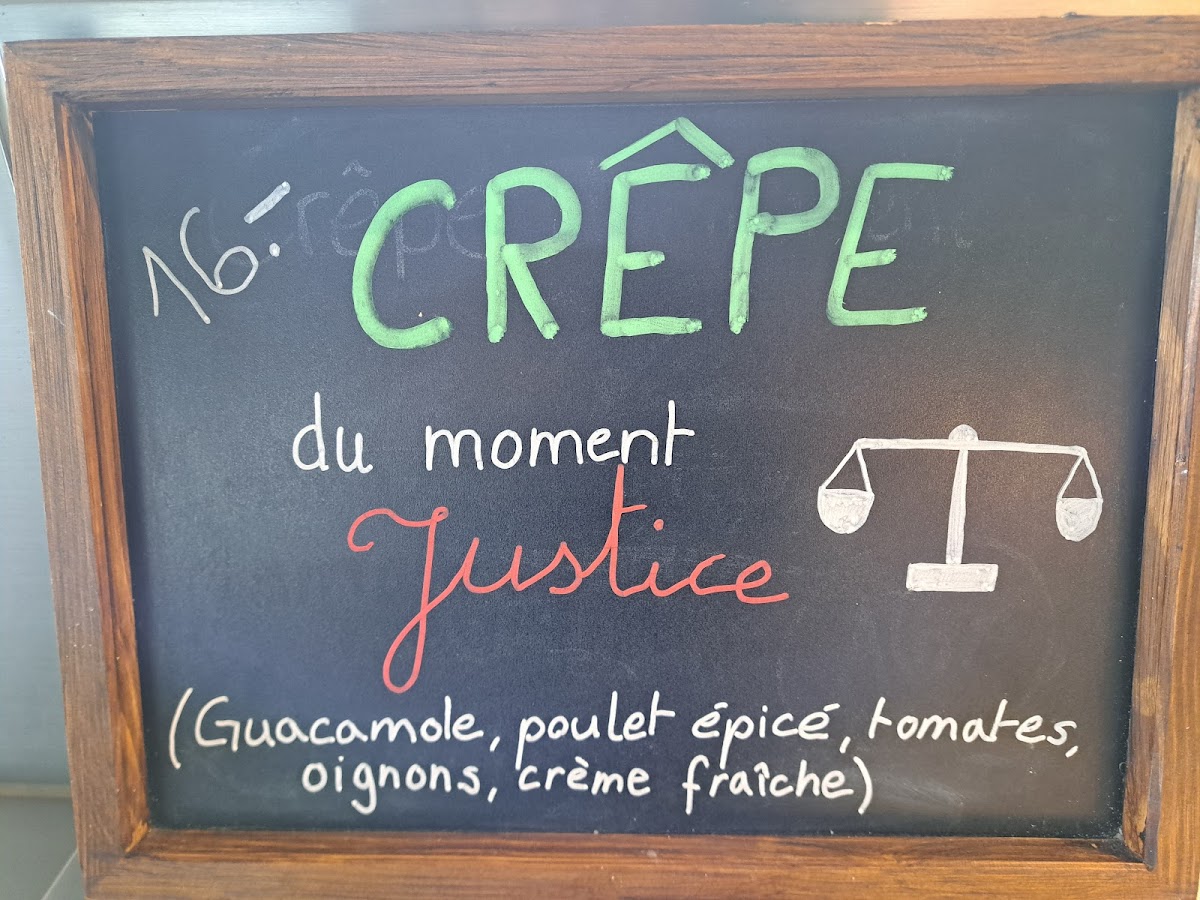 16.-
CRÊPE
du moment
Justice
(Guacamole, poulet épicé, tomates,
oignons, crème fraîche)